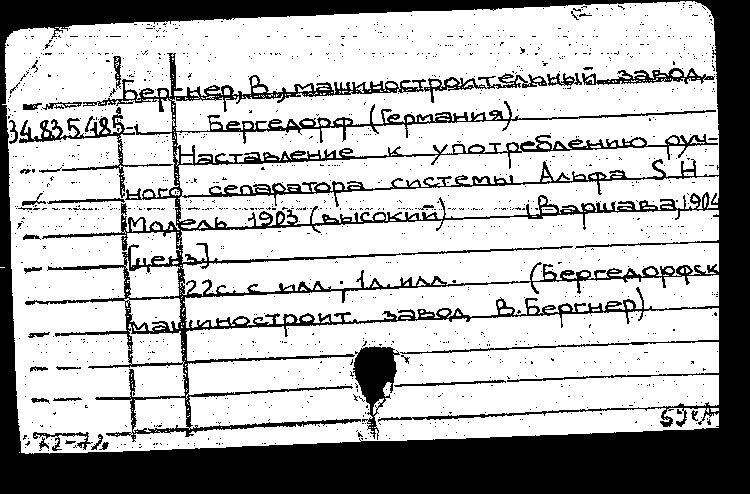 Бергнер, В., машиностроительный завод,
34.83.5.485 Бергедорф (Германия).
Наставление к употреблению руч-
ного сепаратора системы Альфа S H
Модель 1903 (высокий). [Варшава, 1904
[ценз].
22с. с илл.; 1л. илл. (Бергедорфск
машиностроит. завод, В. Бергнер).